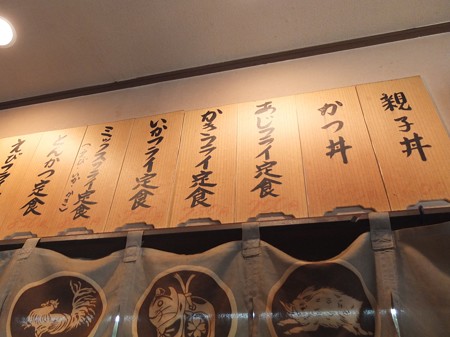 親子丼
かつ丼
あじフライ定食
かきフライ定食
いかフライ定食
ミックスフライ定食
(えび・いか・かき)
とんかつ定食
えびフライ